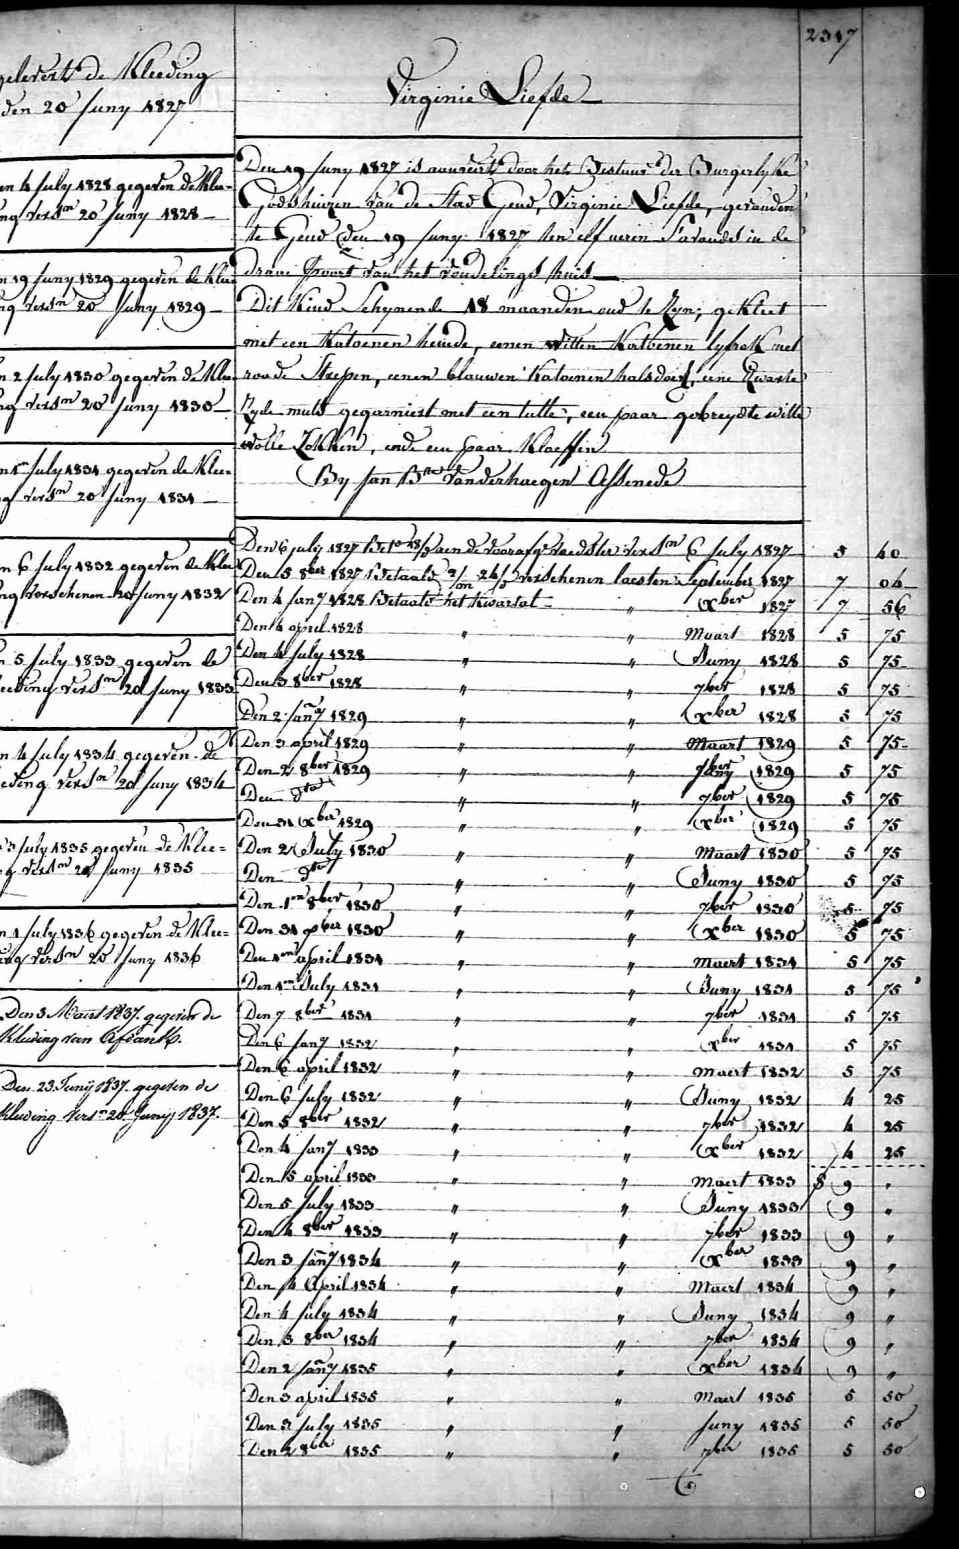 2317
gelevert de Kleeding
den 20 Juny 1827
en 4 July 1828 gegeven de Klee-
ng versn 20 Juny 1828
n 19 Juny 1829 gegeven de Klee
ng versn 20 Juny 1829
n 2 July 1830 gegeven de Klee
ng versn 20 Juny 1830
n 1en July 1831 gegeven de Klee-
g versn 20 Juny 1831
n 6 July 1832 gegeven de Klee
ng verschenen 20 Juny 1832
n 5 July 1833 gegeven de
leeding versn 20 Juny 1833
n 4 July 1834 gegeven de
eding versn 20 Juny 1834
3 July 1835 gegeven de Klee=
g versn 20 Juny 1835
n 1 July 1836 gegeven de Klee=
ing versn 20 Juny 1836
Den 3 Maart 1837. gegeven de
Kleding van
Den 23 Junij 1837. gegeven de
Kleeding versn 20 Junij 1837.
Virginie Liefde
Den 19 Juny 1827 is aanveirt door het Bestuur der Burgerlyke
Godshuizen van de Stad Gend, Virginie Liefde, gevonden
te Gend den 19 Juny 1827 ten elf ueren S'avonds in de
draai Poort van het vondelinge huis
Dit Kind Schynende 18 maanden oud te Zyn, gekleet
met een Katoenen hemde, eenen Witten Katoenen lyfrok met
roode Strepen, eenen blauwen Katoenen halsdoek, eene Zwarte
Zyde muts gegarniert met een tulle, een paar gebreyde witte
Wolle Zokken, ende een paar Kloeffen
By Jan Bte Vanderhaegen Assenede
Den 6 july 1827 aen de voedster versn 6 July 1827 5 40
Den 5 8ber 1827 Betaald verschenen laesten September 1827 7 04
Den 4 Jany 1828 Betaald het Kwartal " Xber 1827 7 56
Den 4 april 1828 " " Maart 1828 5 75
Den 4 July 1828 " " Juny 1828 5 75
Den 3 8ber 1828 " " 7ber 1828 5 75
Den 2 Jany 1829 " " Xber 1828 5 75
Den 3 april 1829 " " Maart 1829 5 75
Den 2 8ber 1829 " " Juny 1829 5 75
Den dto " " 7ber 1829 5 75
Den 31 Xber 1829 " " Xber 1829 5 75
Den 2 July 1830 " " Maart 1830 5 75
Den dto " " Juny 1830 5 75
Den 1en 8ber 1830 " " 7ber 1830 5 75
Den 31 Xber 1830 " " Xber 1830 5 75
Den 1en april 1831 " " Maert 1831 5 75
Den 1en July 1831 " " Juny 1831 5 75
Den 7 8ber 1831 " " 7ber 1831 5 75
Den 6 Jany 1832 " " Xber 1831 5 75
Den 6 april 1832 " " Maert 1832 5 75
Den 6 July 1832 " " Juny 1832 4 25
Den 5 8ber 1832 " " 7ber 1832 4 25
Den 4 Jany 1833 " " Xber 1832 4 25
Den 5 april 1833 " " Maert 1833 9 "
Den 5 July 1833 " " Juny 1833 9 "
Den 4 8ber 1833 " " 7ber 1833 9 "
Den 3 Jany 1834 " " Xber 1833 9 "
Den 4 April 1834 " " Maert 1834 9 "
Den 4 July 1834 " " Juny 1834 9 "
Den 3 8ber 1834 " " 7ber 1834 9 "
Den 2 Jany 1835 " " Xber 1834 9 "
Den 3 april 1835 " " Maert 1835 5 50
Den 3 July 1835 " " Juny 1835 5 50
Den 2 8ber 1835 " " 7ber 1835 5 50